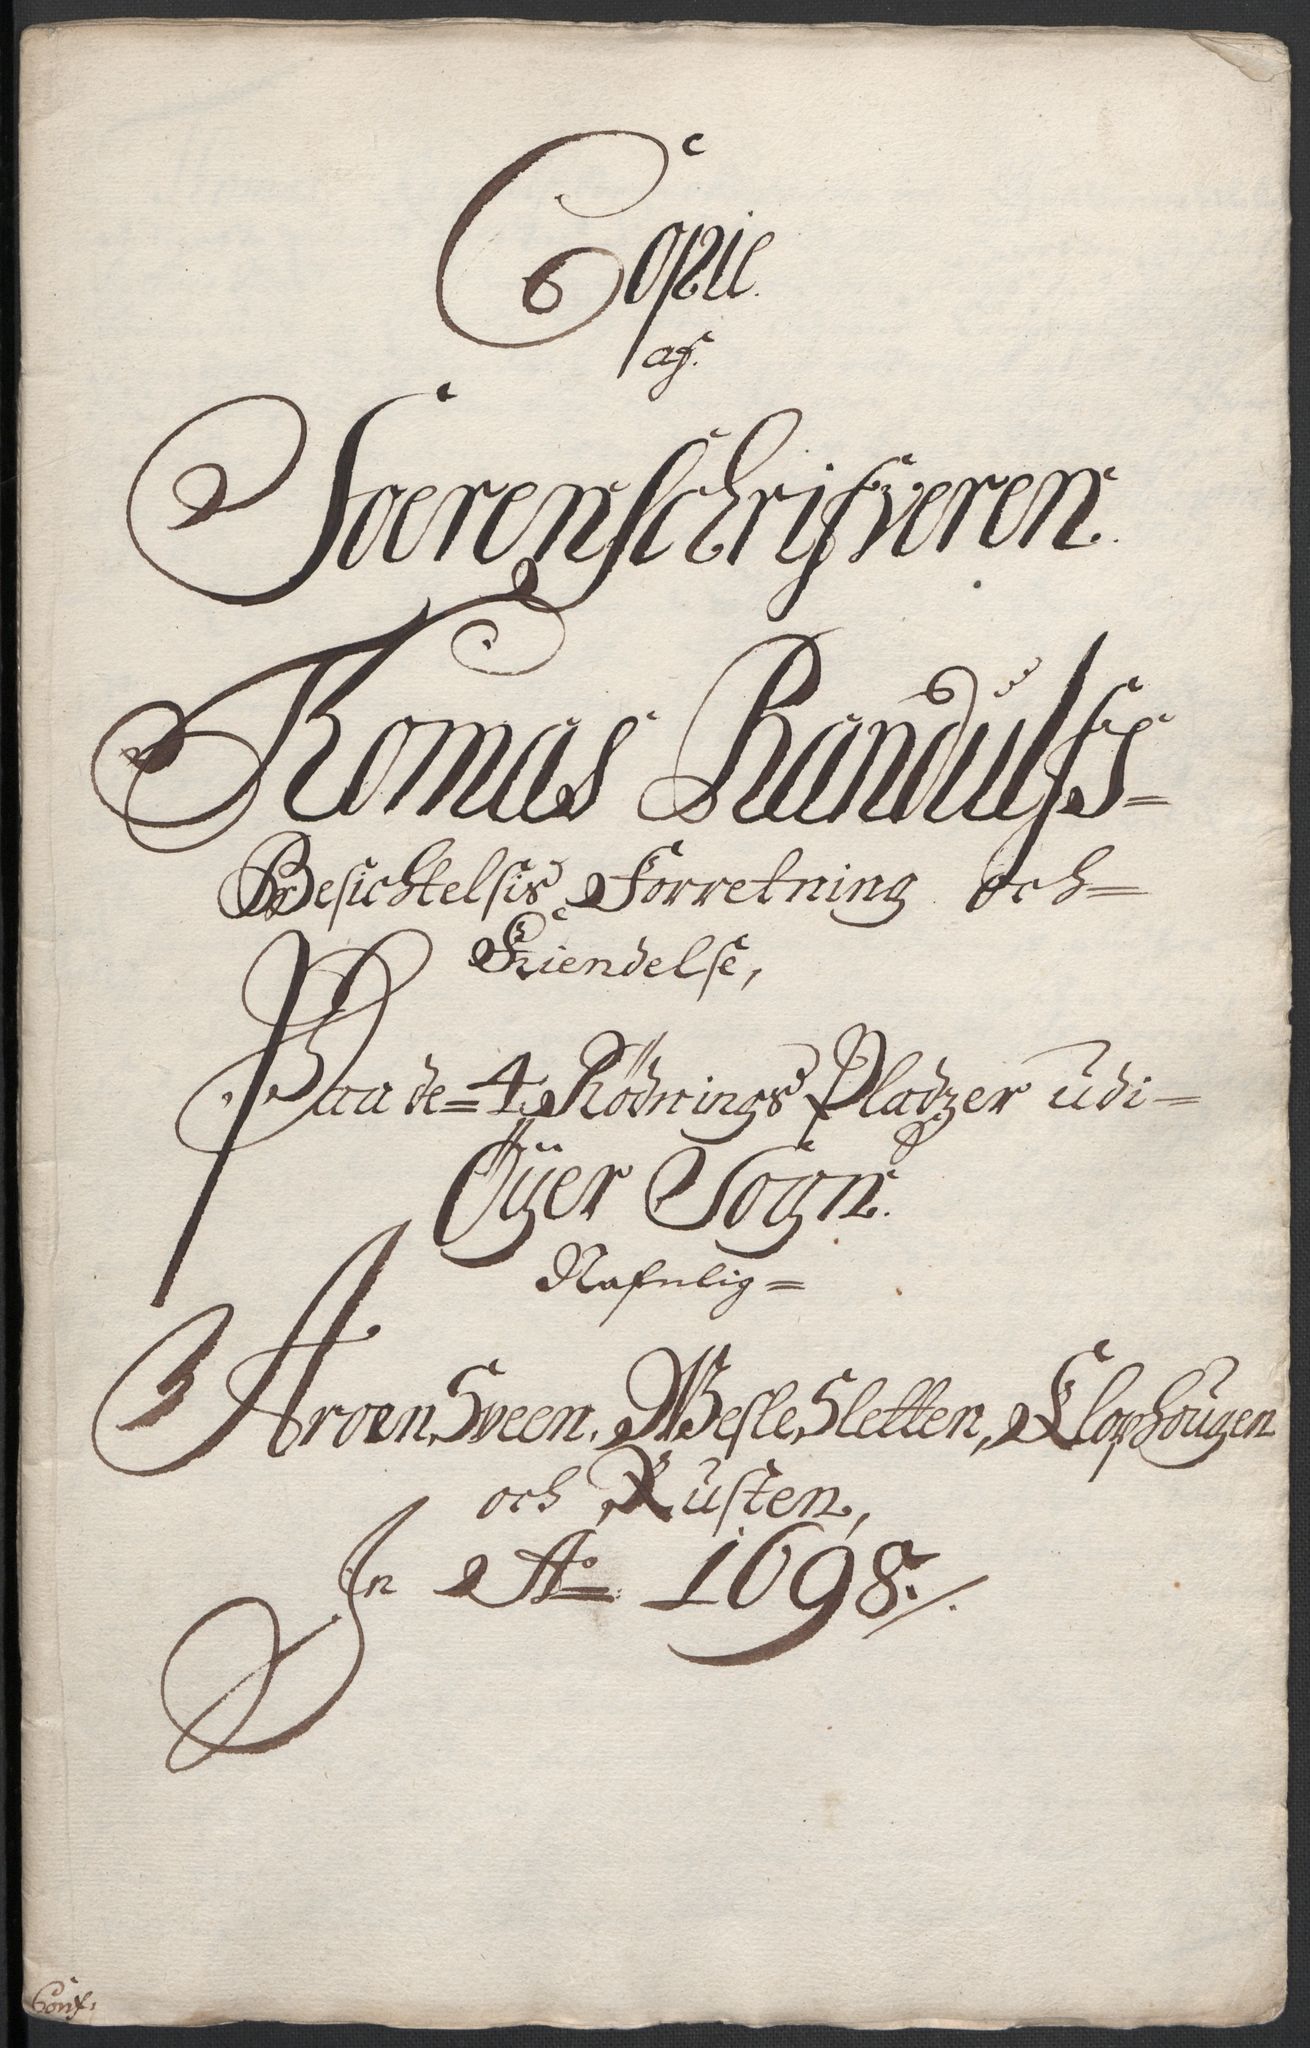 Copie
af
Soerenschrifveren
Tomas Randulfs=
Besichtelsis Forretning och=
Kiendelse,
Paa de=4 Rödnings Pladzer udi=
Öÿer Sogn.
Nafnlig=
Aroen, Sveen, Wesle Sletten, Klophougen
och Rusten,
In Ao 1698./.
Conf: